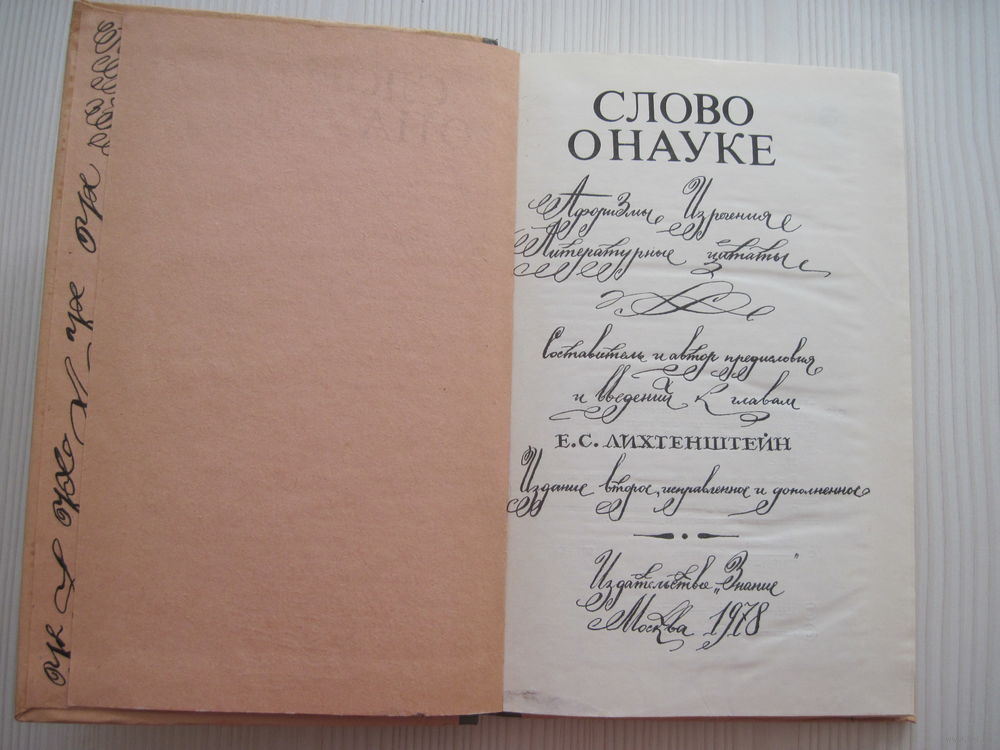 СЛОВО
О НАУКЕ
Афоризмы Изречения
Литературные цитаты
Составитель и автор предисловия
и введений к главам
Е.С. ЛИХТЕНШТЕЙН
Издание второе, исправленное и дополненное
Издательство „Знание"
Москва 1978